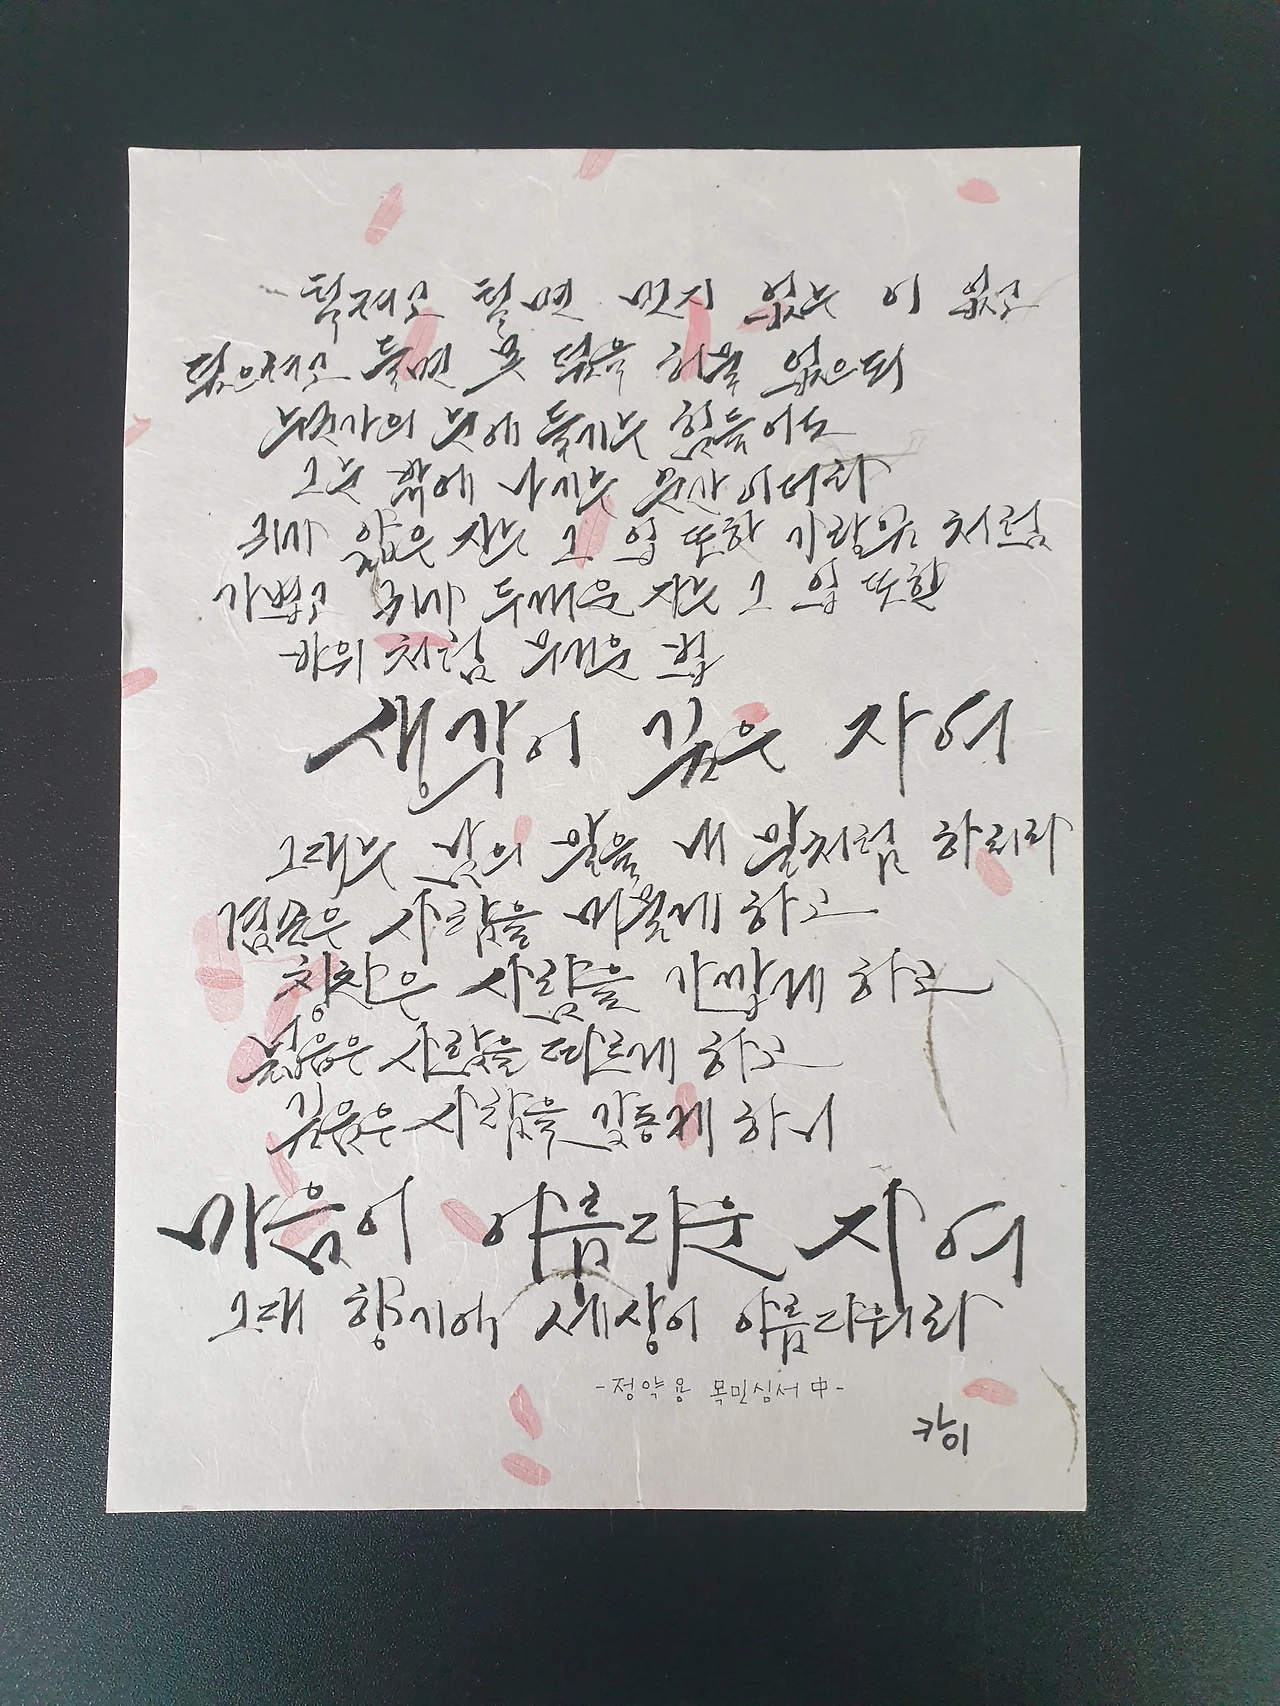 털려고 털면 먼지 없는 이 없고
덮으려고 들면 못 덮을 허물 없으되
누군가의 눈에 들기는 힘들어도
그 눈 밖에 나기는 한순간이더라
귀가 얇은 자는 그 입 또한 가랑잎처럼
가볍고 귀가 두꺼운 자는 그 입 또한
바위처럼 무거운 법
생각이 깊은 자여
그대는 남의 말을 내 말처럼 하리라
겸손은 사람을 머물게 하고
칭찬은 사람을 가깝게 하고
넓음은 사람을 따르게 하고
깊음은 사람을 감동케 하니
마음이 아름다운 자여
그대 향기에 세상이 아름다워라
-정약용 목민심서 中-
카이